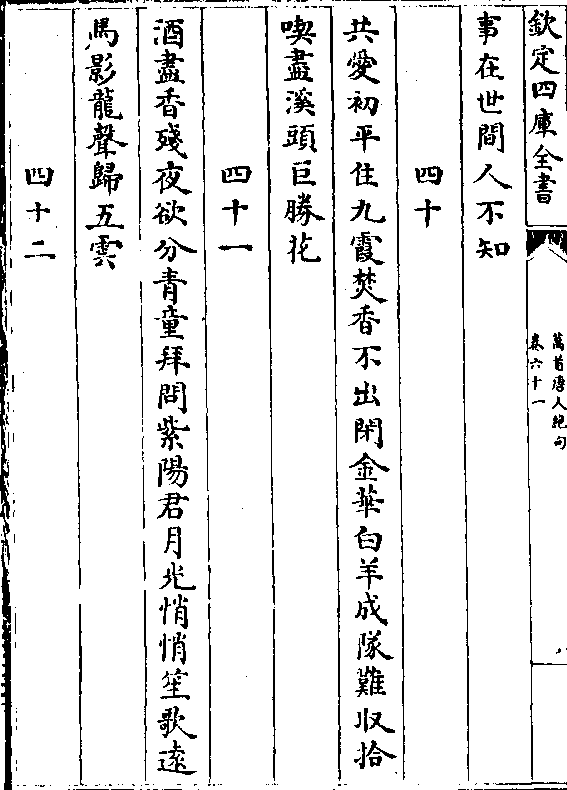 欽定四庫全書
萬首唐人絕句
卷六十一
事在世間人不知
四十
共愛初平住九霞焚香不出閉金華白羊成隊難収拾
喫盡溪頭巨勝花
四十一
酒盡香殘夜欲分青童拜問紫陽君月光悄悄笙歌遠
馬影龍聲歸五雲
四十二